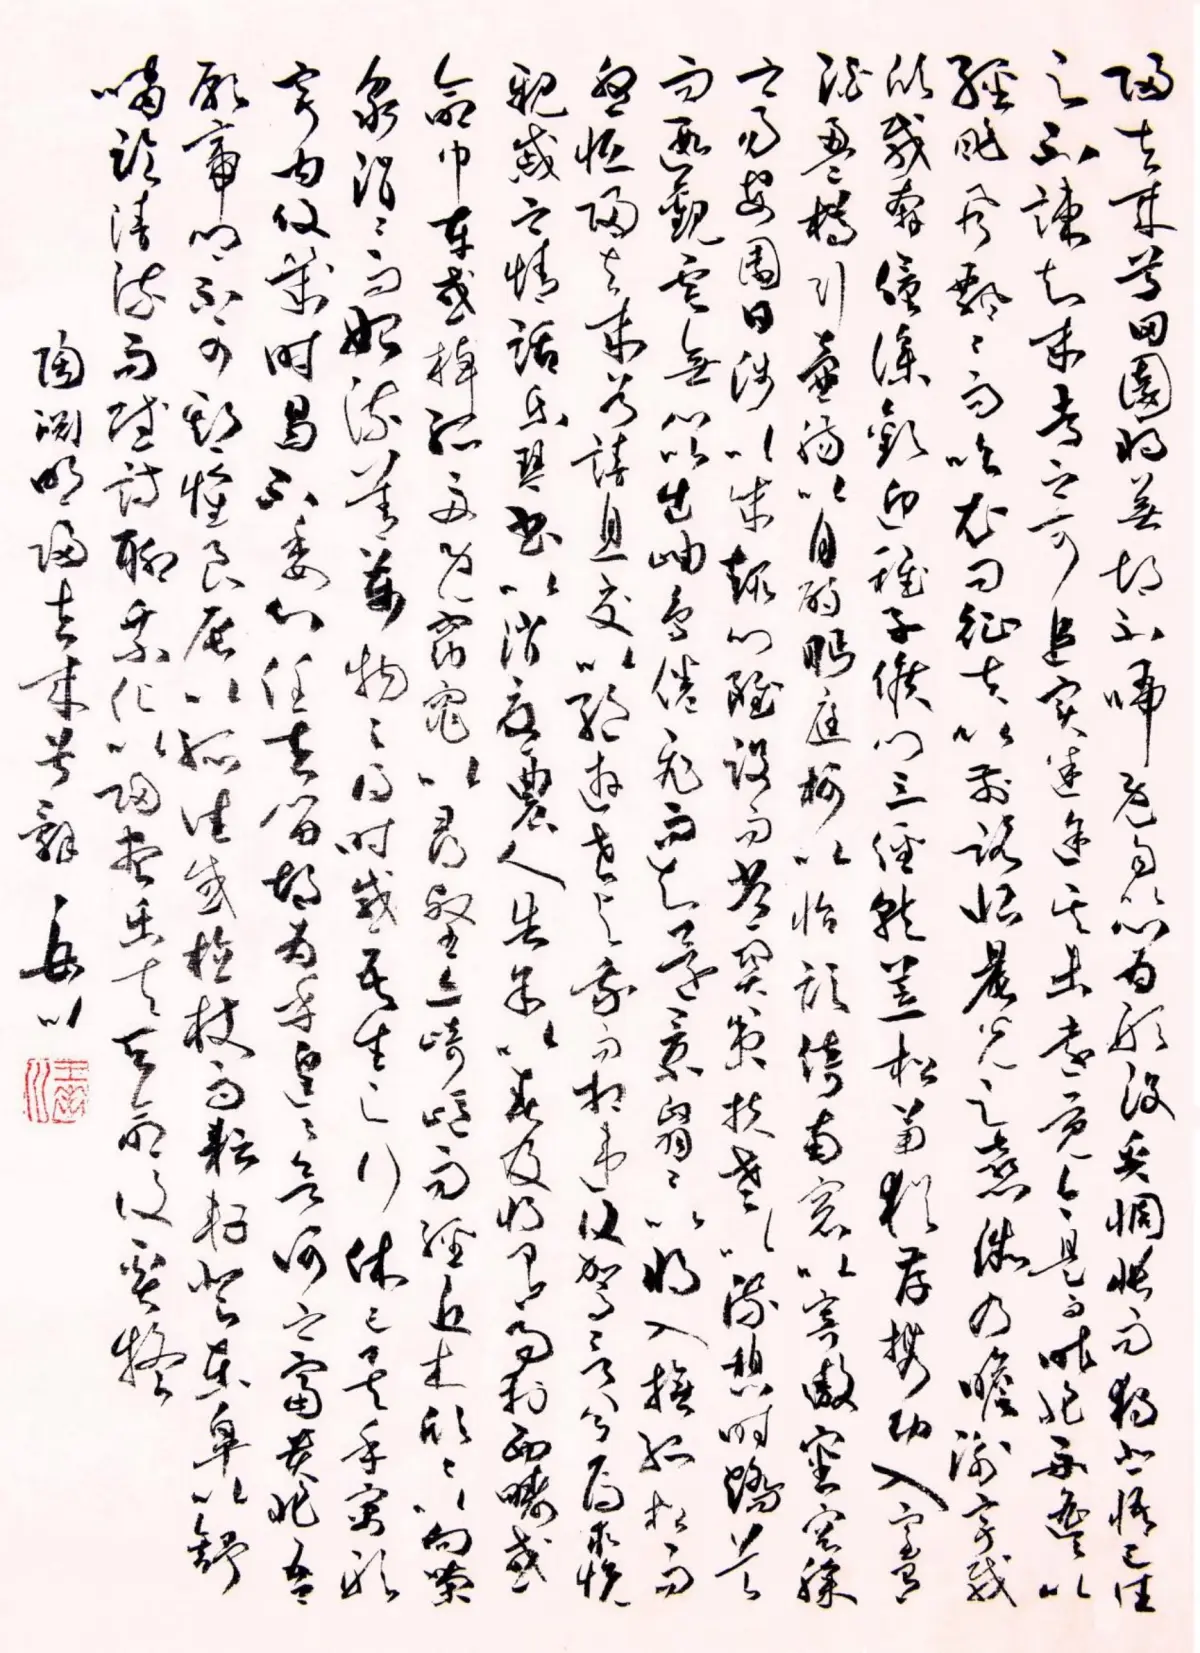 歸去來兮田園將蕪胡不歸既自以心為形役奚惆悵而獨悲悟已往
之不諫知來者之可追實迷途其未遠覺今是而昨非舟遙以
輕颺風飄〻而吹衣問征夫以前路恨晨光之熹微乃瞻衡宇載
欣載奔僮僕歡迎稚子候門三徑就荒松菊猶存攜幼入室有
酒盈樽引壺觴以自酌眄庭柯以怡顏倚南窗以寄傲審容膝
之易安園日涉以成趣門雖設而常關策扶老以流憩時矯首
而遐觀雲無心以出岫鳥倦飛而知還景翳〻以將入撫孤松而
盤桓歸去來兮請息交以絕遊世與我而相違復駕言兮焉求悅
親戚之情話樂琴書以消憂農人告余以春及將有事於西疇或
命巾車或棹孤舟既窈窕以尋壑亦崎嶇而經丘木欣〻以向榮
泉涓〻而始流善萬物之得時感吾生之行休已矣乎寓形
宇內復幾時曷不委心任去留胡為乎遑〻欲何之富貴非吾
願帝鄉不可期懷良辰以孤往或植杖而耘耔登東皋以舒
嘯臨清流而賦詩聊乘化以歸盡樂夫天命復奚疑
陶淵明歸去來兮辭